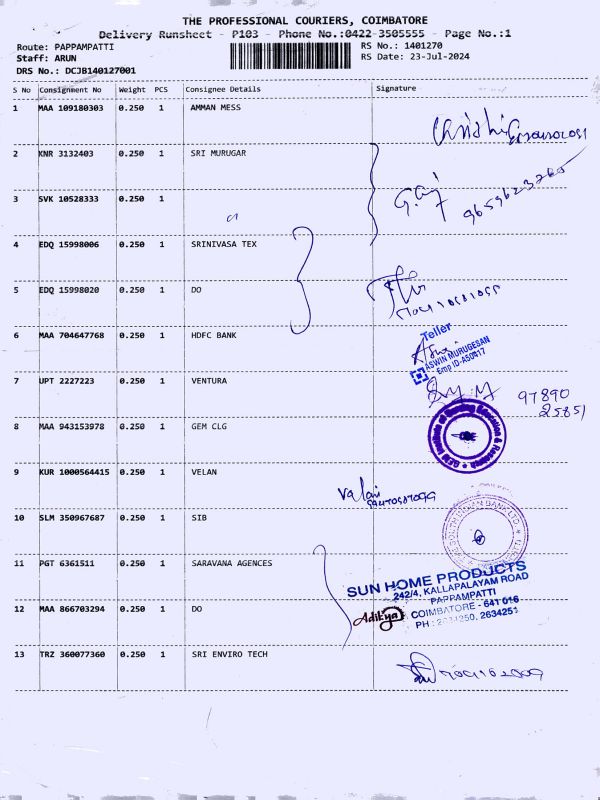 THE PROFESSIONAL COURIERS, COIMBATORE
Delivery Runsheet - P103 - Phone No.:0422-3505555 - Page No.:1
Route: PAPPAMPATTI
Staff: ARUN
DRS No.: DCJB140127001
RS No.: 1401270
RS Date: 23-Jul-2024
S No Consignment No Weight PCS Consignee Details Signature
1 MAA 109180303 0.250 1 AMMAN MESS
2 KNR 3132403 0.250 1 SRI MURUGAR
3 SVK 10528333 0.250 1
9659623265
4 EDQ 15998006 0.250 1 SRINIVASA TEX
5 EDQ 15998020 0.250 1 DO
6 MAA 704647768 0.250 1 HDFC BANK
Teller
ASWIN MURUGESAN
7 UPT 2227223 0.250 1 VENTURA
97890
25851
8 MAA 943153978 0.250 1 GEM CLG
9 KUR 1000564415 0.250 1 VELAN
10 SLM 350967687 0.250 1 SIB
11 PGT 6361511 0.250 1 SARAVANA AGENCES
SUN HOME PRODUCTS
242/4, KALLAPALAYAM ROAD
PAPPAMPATTI
COIMBATORE - 641 016
12 MAA 866703294 0.250 1 DO
Aditya
13 TRZ 360077360 0.250 1 SRI ENVIRO TECH